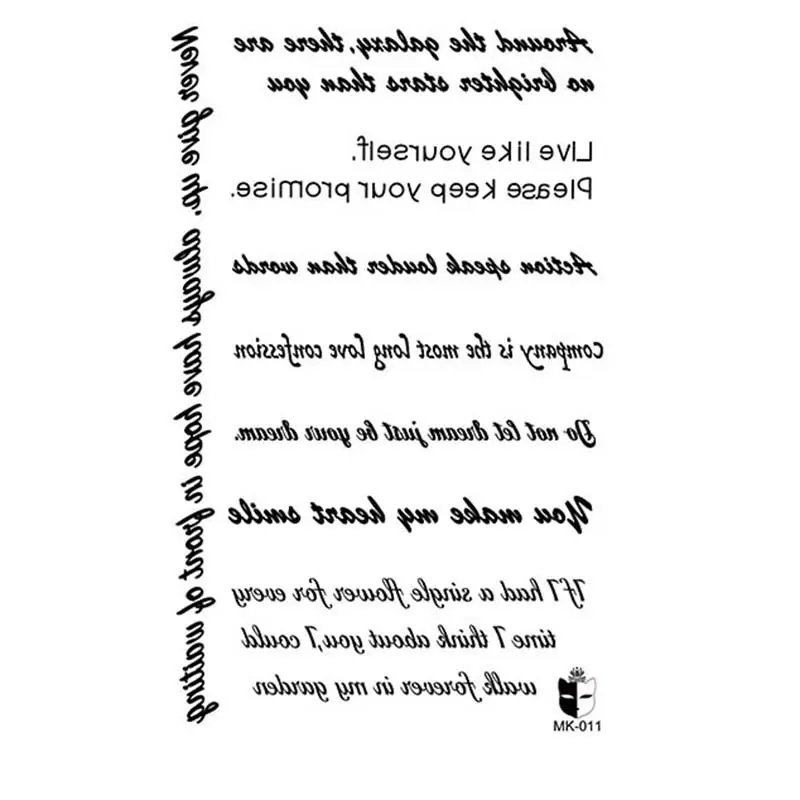 Never give up, always have hope in front of waiting
Around the galaxy, there are
no brighter stars than you
Live like yourself.
Please keep your promise.
Action speak louder than words
company is the most long love confession
Do not let dream just be your dream.
You make my heart smile
If I had a single flower for every
time I think about you,I could
walk forever in my garden
MK-011